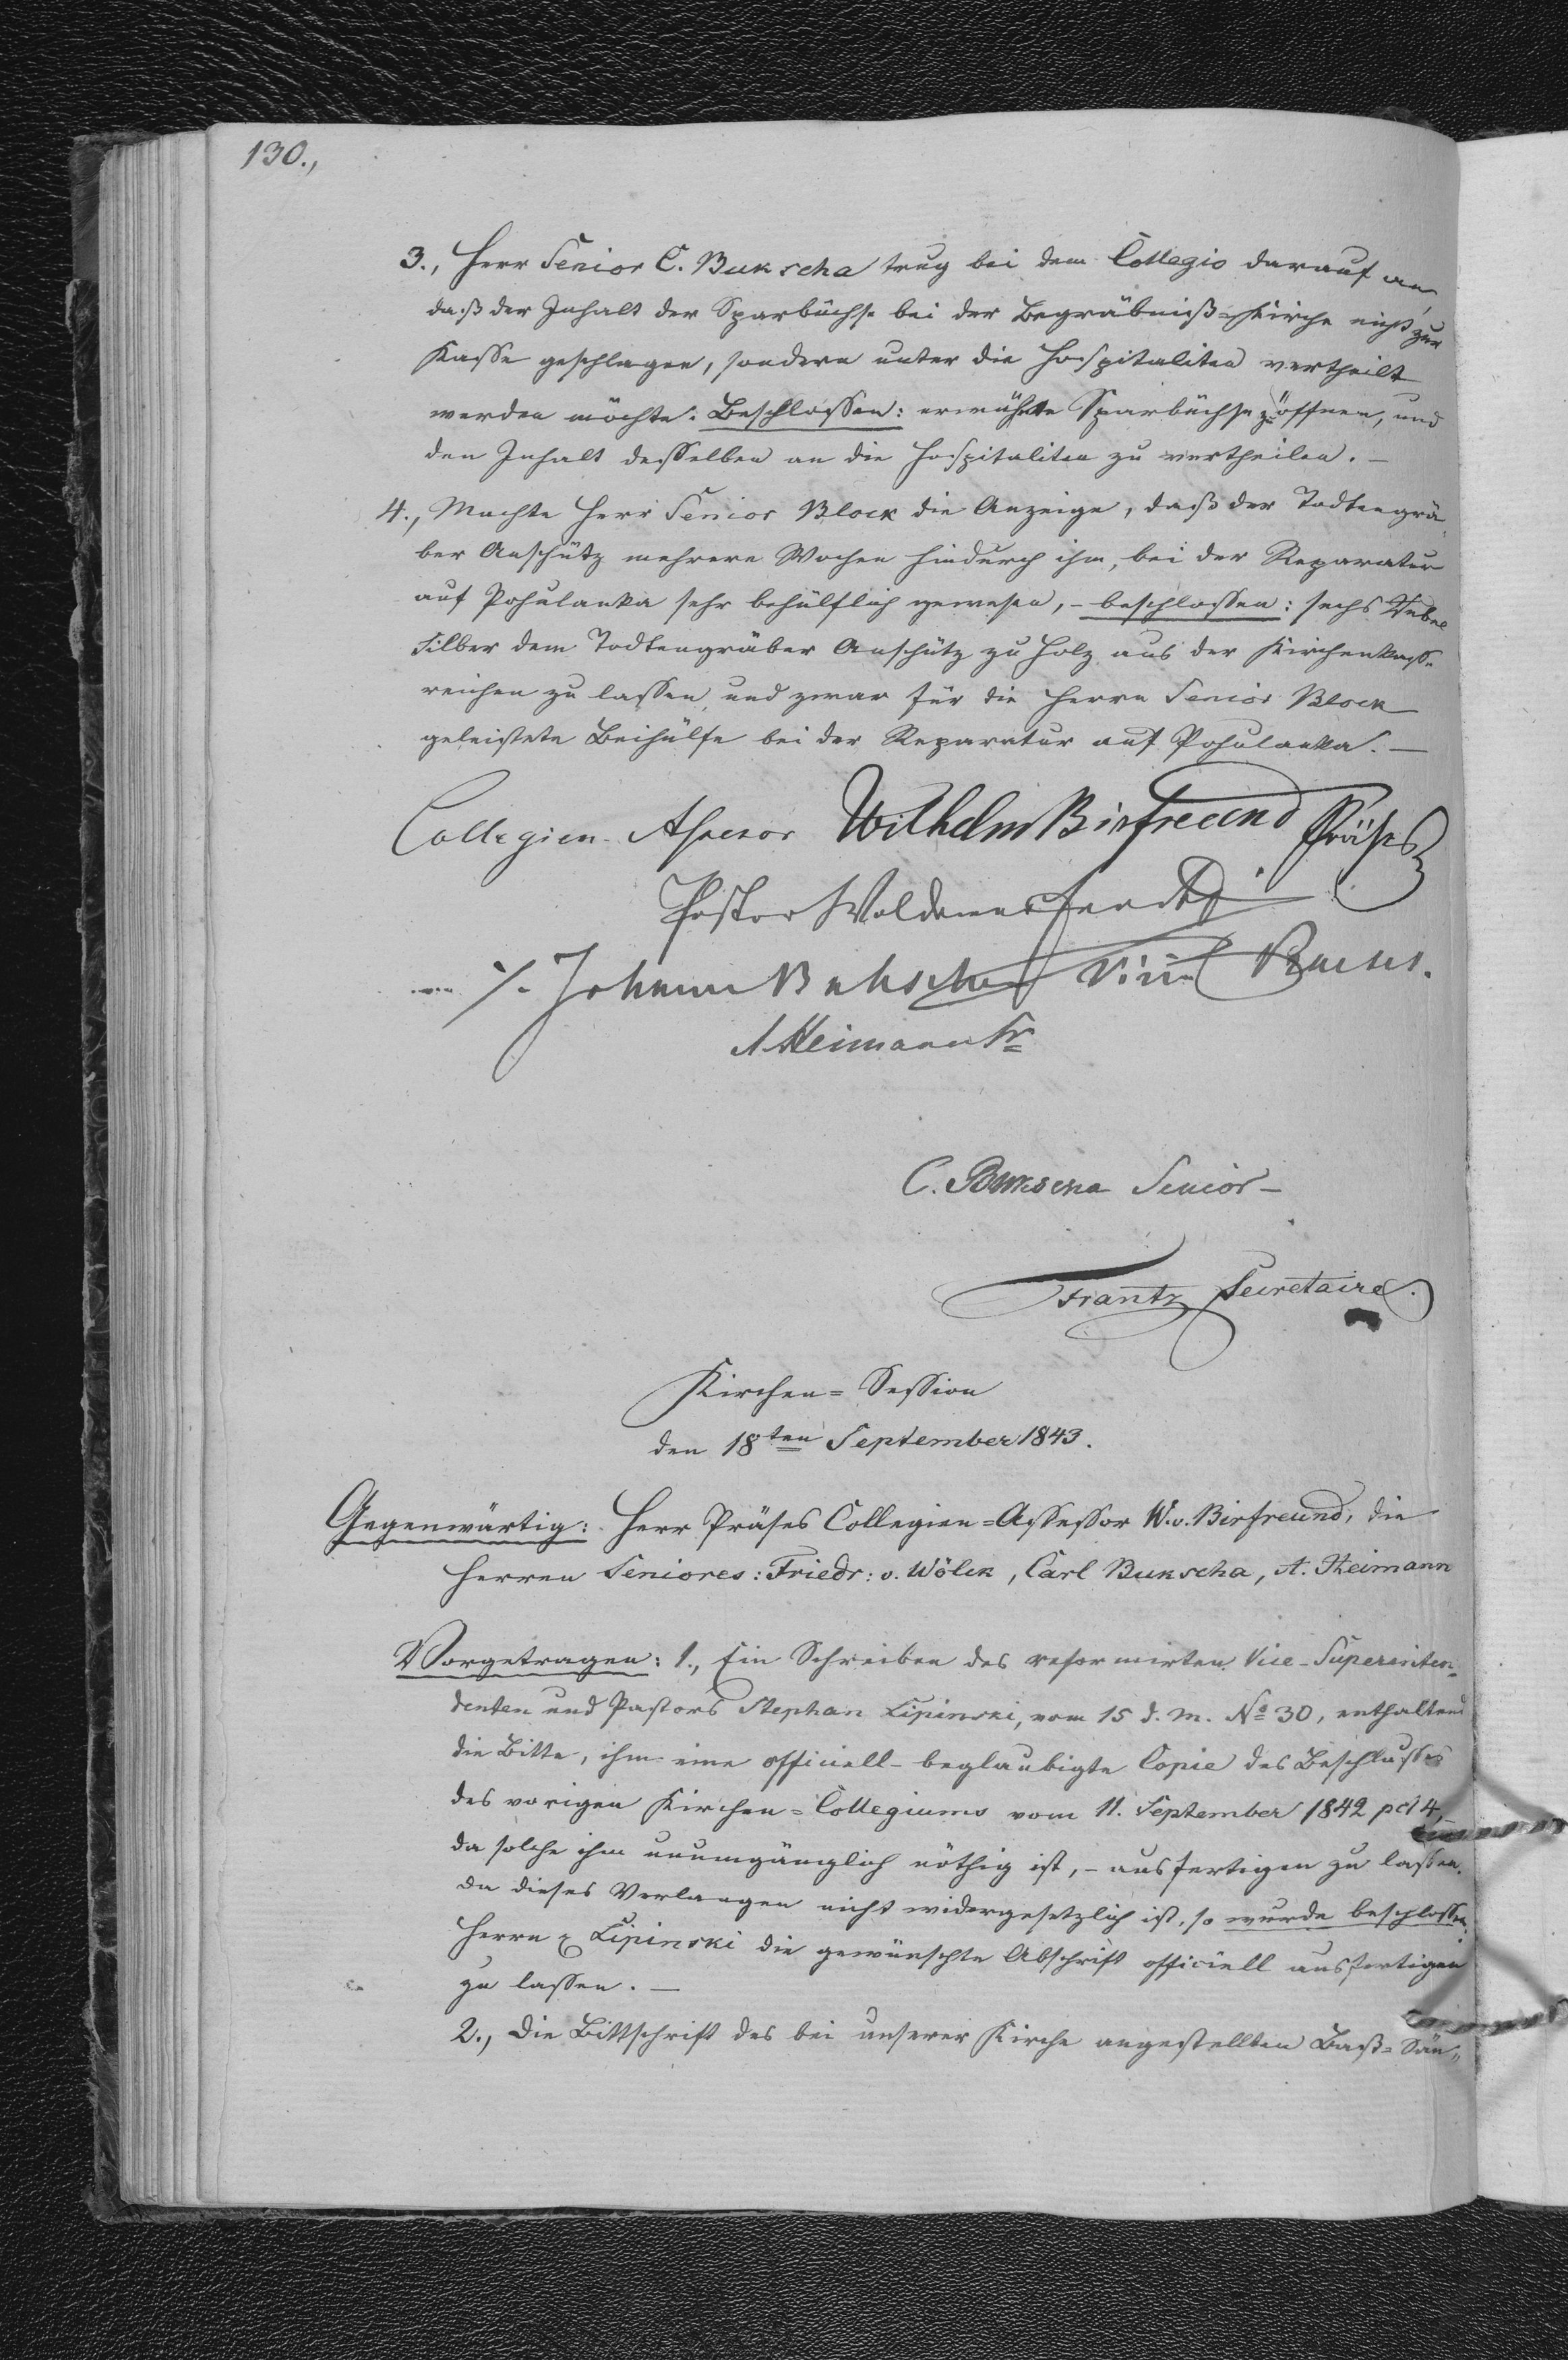 130.,
3., Herr Senior C. Bukscha trug bei dem Collegio darauf an,
daß der Inhalt der Sparbüchse bei der Begräbniß-Kirche nicht zur
Kasse geschlagen, sondern unter die Hospitaliten vertheilt
werden möchte. Beschlossen: erwähnte Sparbüchse zu öffnen, und
den Inhalt desselben an die Hospitaliten zu vertheilen. —
4., Machte Herr Senior Block die Anzeige, daß der Todtengrä-
ber Anschütz mehrere Wochen hindurch ihm, bei der Reparatur
auf Pohulanka sehr behülflich gewesen, - beschlossen: sechs Rubel
Silber dem Todtengräber Anschütz zu Holz aus der Kirchenkasse
reichen zu lassen, und zwar für die Herrn Senior Block
geleistete Beihülfe bei der Reparatur auf Pohulanka. —
Collegien-Assessor Wilhelm Birfreund Präses
Pastor Woldemar
Johann Bukscha Vice Praeses.
A Heimann Sr
C. Bukscha Senior -
Frantz Secretaire.
Kirchen = Session
den 18ten September 1843.
Gegenwärtig: Herr Präses Collegien = Assessor W. v. Birfreund, die
Herren Seniores: Friedr: v. Wölck, Carl Bukscha, A. Heimann
Vorgetragen: 1., Ein Schreiben des reformirten Vice-Superinten=
denten und Pastors Stephan Lipinski, vom 15 d. M. No 30, enthaltend
die Bitte, ihm eine officiell-beglaubigte Copie des Beschlusses
des vorigen Kirchen = Collegiums vom 11. September 1842 pct 4,
da solche ihm unumgänglich nöthig ist, - ausfertigen zu lassen.
Da dieses Verlangen nicht widergesetzlich ist, so wurde beschlossen:
Herrn Lipinski die gewünschte Abschrift officiell ausfertigen
zu lassen. —
2., Die Bittschrift des bei unserer Kirche angestellten Baß = Sän„